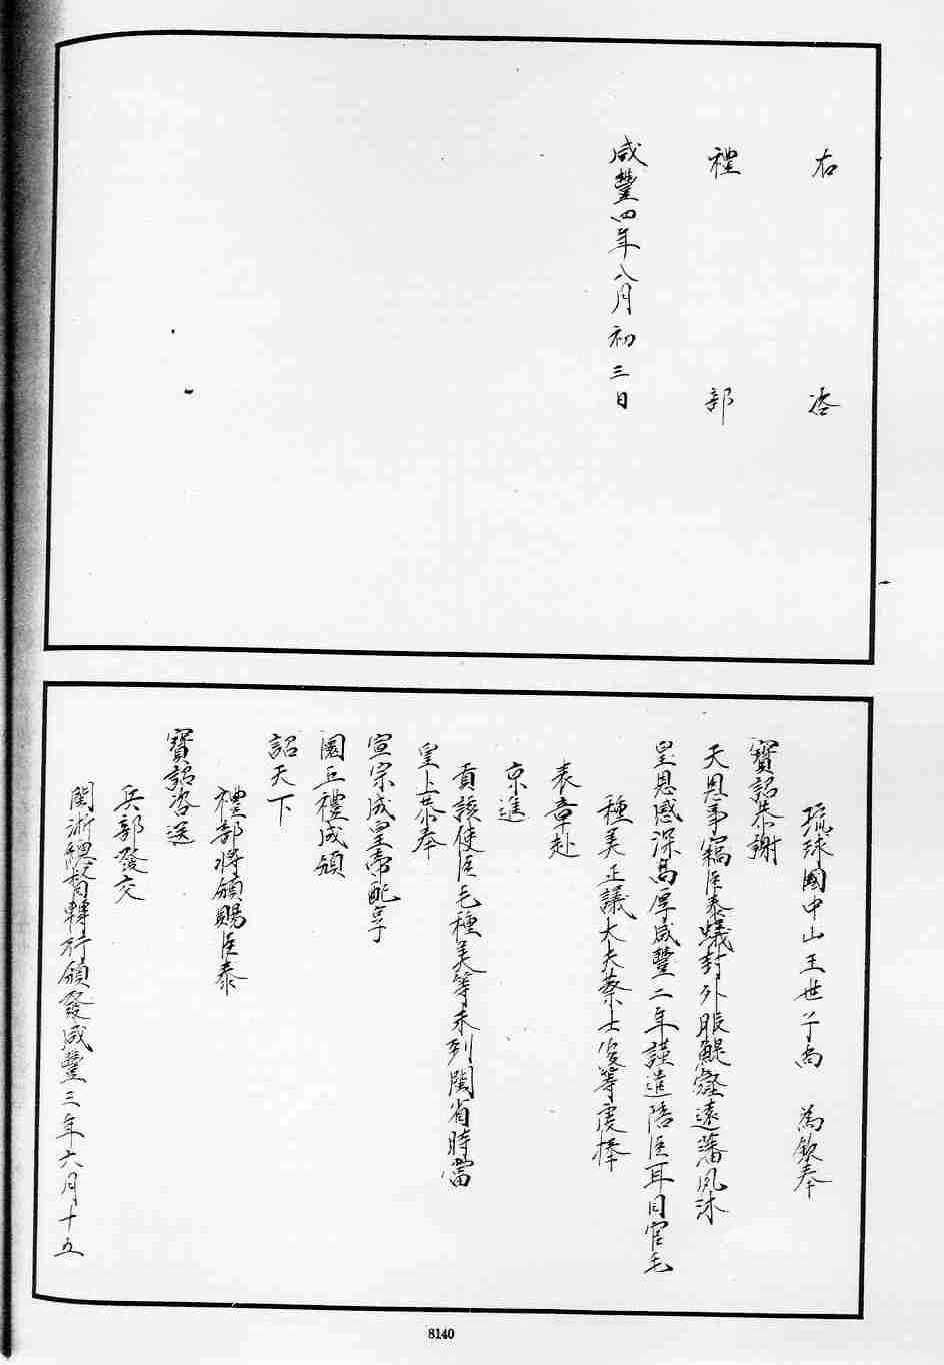 右咨
禮部
咸豐四年八月初三日
琉球國中山王世子尚 為欽奉
寶詔恭謝
天恩事竊臣泰蟻封外服鯷壑遠藩夙沐
皇恩感深高厚咸豐二年謹遣陪臣耳目官毛
種美正議大夫蔡士俊等虔捧
表章赴
京進
貢該使臣毛種美等未到閩省時當
皇上恭奉
宣宗成皇帝配享
圜丘禮成頒
詔天下
禮部將頒賜臣泰
寶詔咨送
兵部發交
閩浙總督轉行頒發咸豐三年六月十五
8140